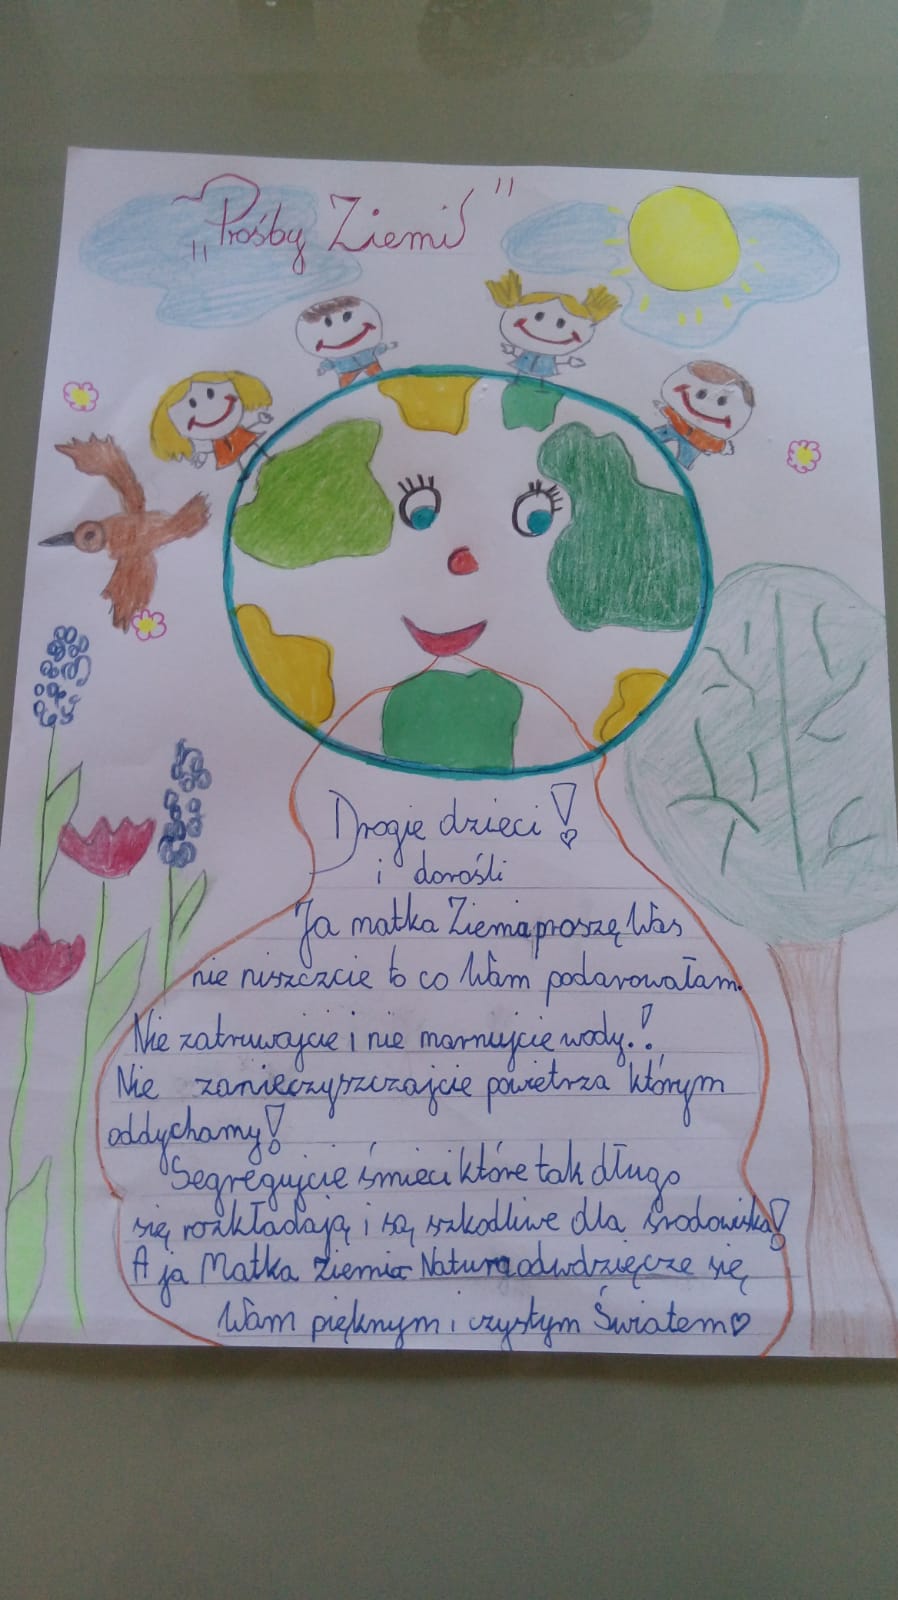 „Prośby Ziemi"
Drogie dzieci!
i dorośli
Ja matka Ziemia proszę Was
nie niszczcie to co Wam podarowałam.
Nie zatruwajcie i nie marnujcie wody.!
Nie zanieczyszczajcie powietrza którym
oddychamy!
Segregujcie śmieci które tak długo
się rozkładają i są szkodliwe dla środowiska!
A ja Matka Ziemia Natura odwdzięcze się
Wam pięknym i czystym Światem♡